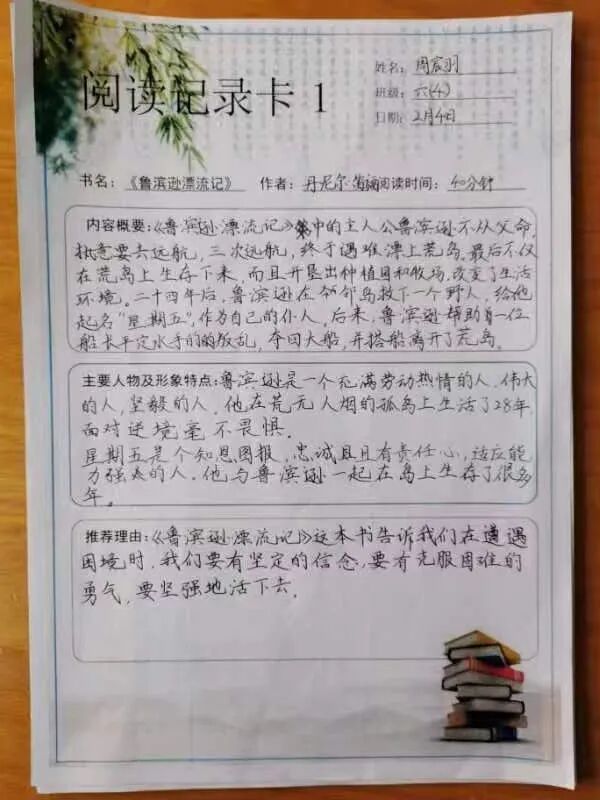 阅读记录卡 1
姓名：周宸羽
班级：六(4)
日期：2月4日
书名：《鲁滨逊漂流记》 作者：丹尼尔·笛福 阅读时间：40分钟
内容概要：《鲁滨逊漂流记》中的主人公鲁滨逊不从父命，
执意要去远航，三次远航，终于遇难漂上荒岛。最后不仅
在荒岛上生存下来，而且开垦出种植园和牧场，改变了生活
环境。二十四年后，鲁滨逊在邻岛救下一个野人，给他
起名"星期五"，作为自己的仆人，后来，鲁滨逊帮助一位
船长平定水手们的叛乱，夺回大船，并搭船离开了荒岛。
主要人物及形象特点：鲁滨逊是一个充满劳动热情的人，伟大
的人，坚毅的人，他在荒无人烟的孤岛上生活了28年，
面对逆境毫不畏惧．
星期五是个知恩图报，忠诚且且有责任心，适应能
力强的人．他与鲁滨逊一起在岛上生存了很多
年．
推荐理由：《鲁滨逊漂流记》这本书告诉我们在遭遇
困境时，我们要有坚定的信念，要有克服困难的
勇气，要坚强地活下去．